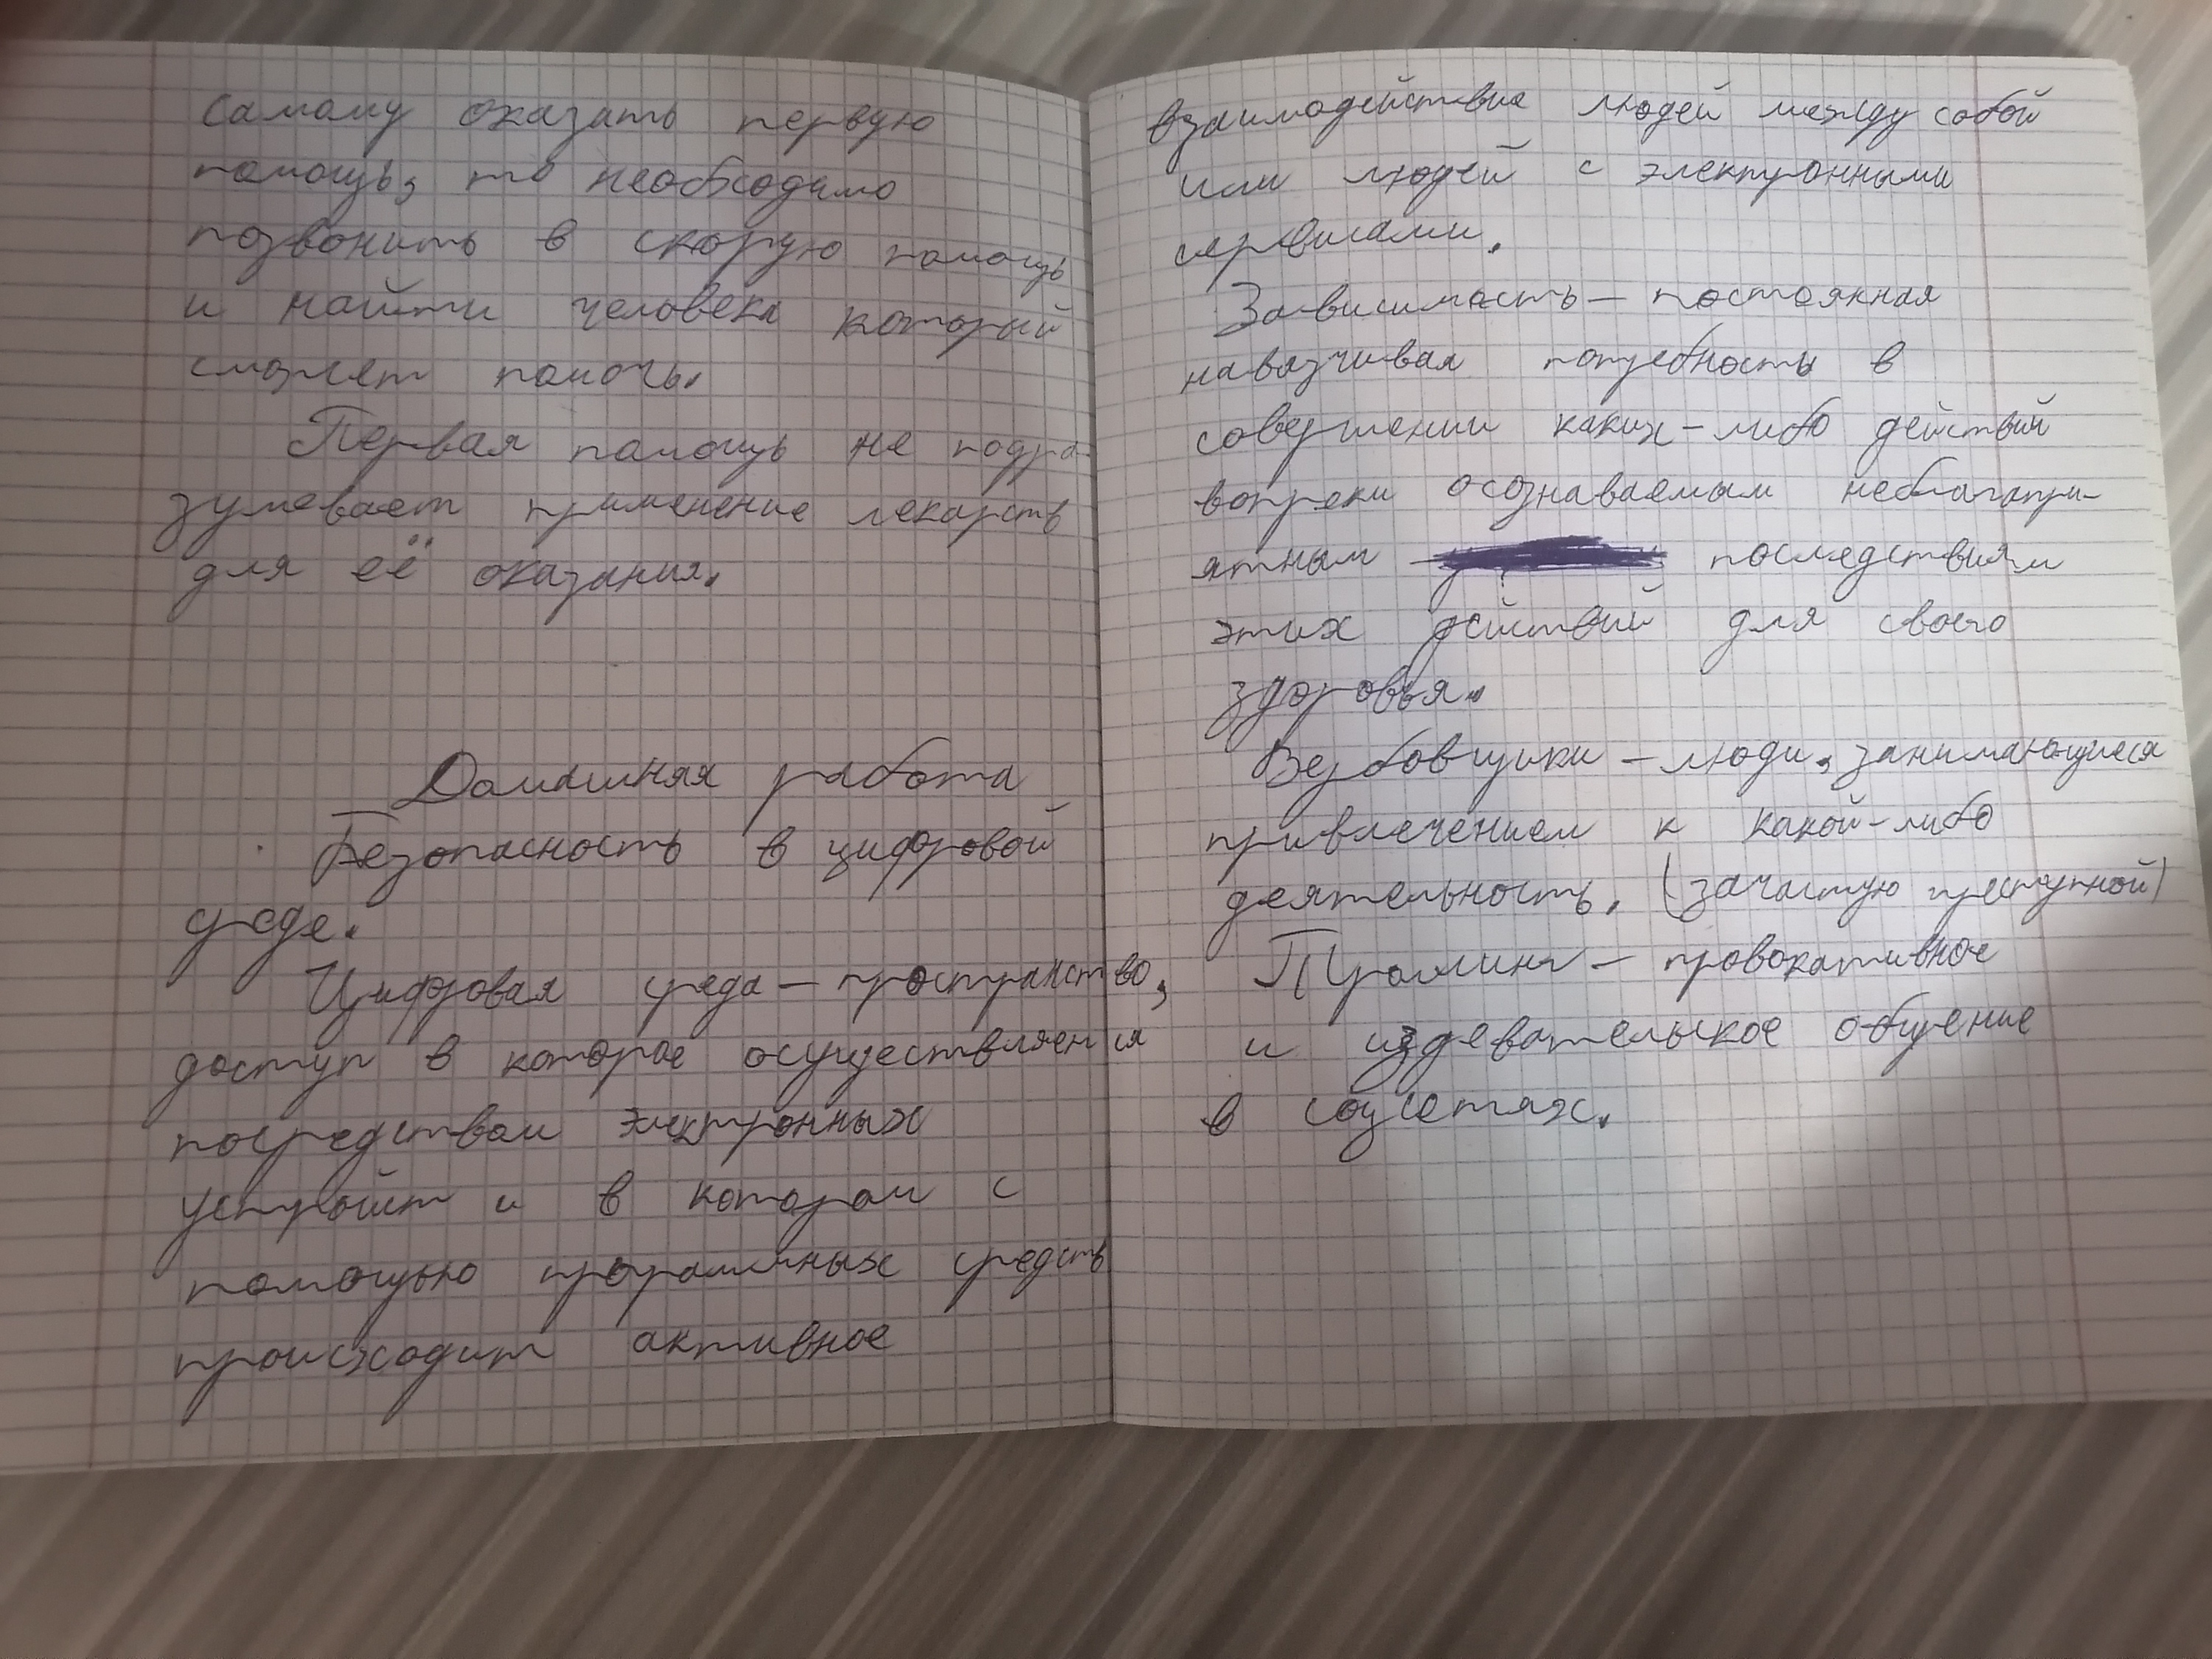 самому оказать первую
помощь, то необходимо
позвонить в скорую помощь
и найти человека который
сможет помочь.
Первая помощь не подра-
зумевает применение лекарств
для её оказания.
Домашняя работа
Безопасность в цифровой
среде.
Цифровая среда – пространство,
доступ в которое осуществляется
посредством электронных
устройст и в котором с
помощью програмных средств
происходит активное
взаимодействие людей между собой
или людей с электронными
сервисами.
Зависимость – постоянная
навязчивая потребность в
совершении каких-либо действий
вопреки осознаваемым неблагопри-
ятным последствиям
этих действий для своего
здоровья.
Вербовщики – люди, занимающиеся
привлечением к какой-либо
деятельность. (зачастую преступной)
Троллинг – провокативное
и издевательское общение
в соцсетях.